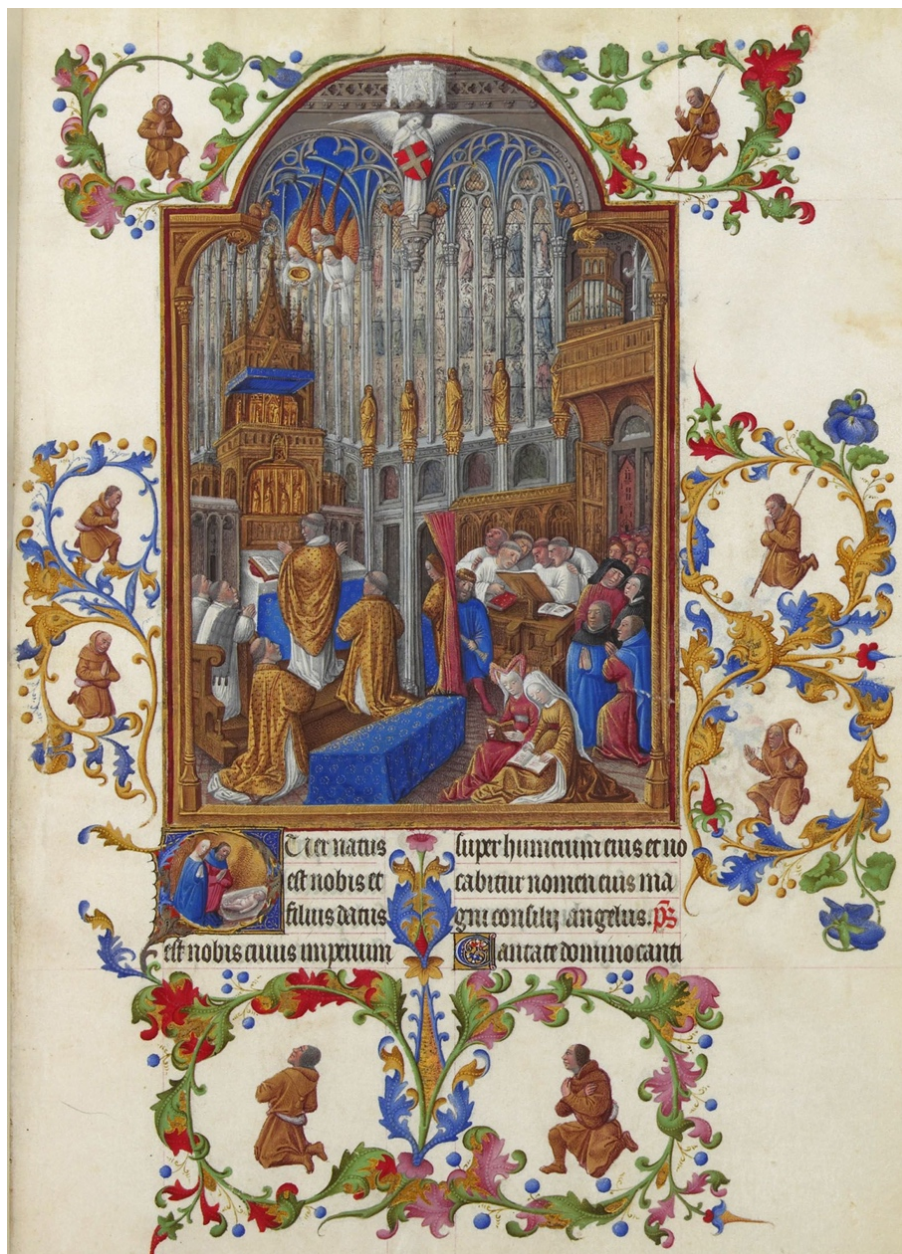 Puer natus
est nobis et
filius datus
est nobis cuius imperium
super humerum eius et uo
cabitur nomen eius ma
gni consilij angelus. ps
Cantate domino canti